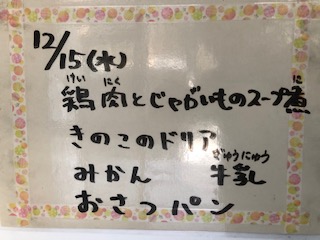 12/15(水)
けい にく に
鶏肉とじゃがいものスープ煮
きのこのドリア
ぎゅうにゅう
みかん 牛乳
おさつパン